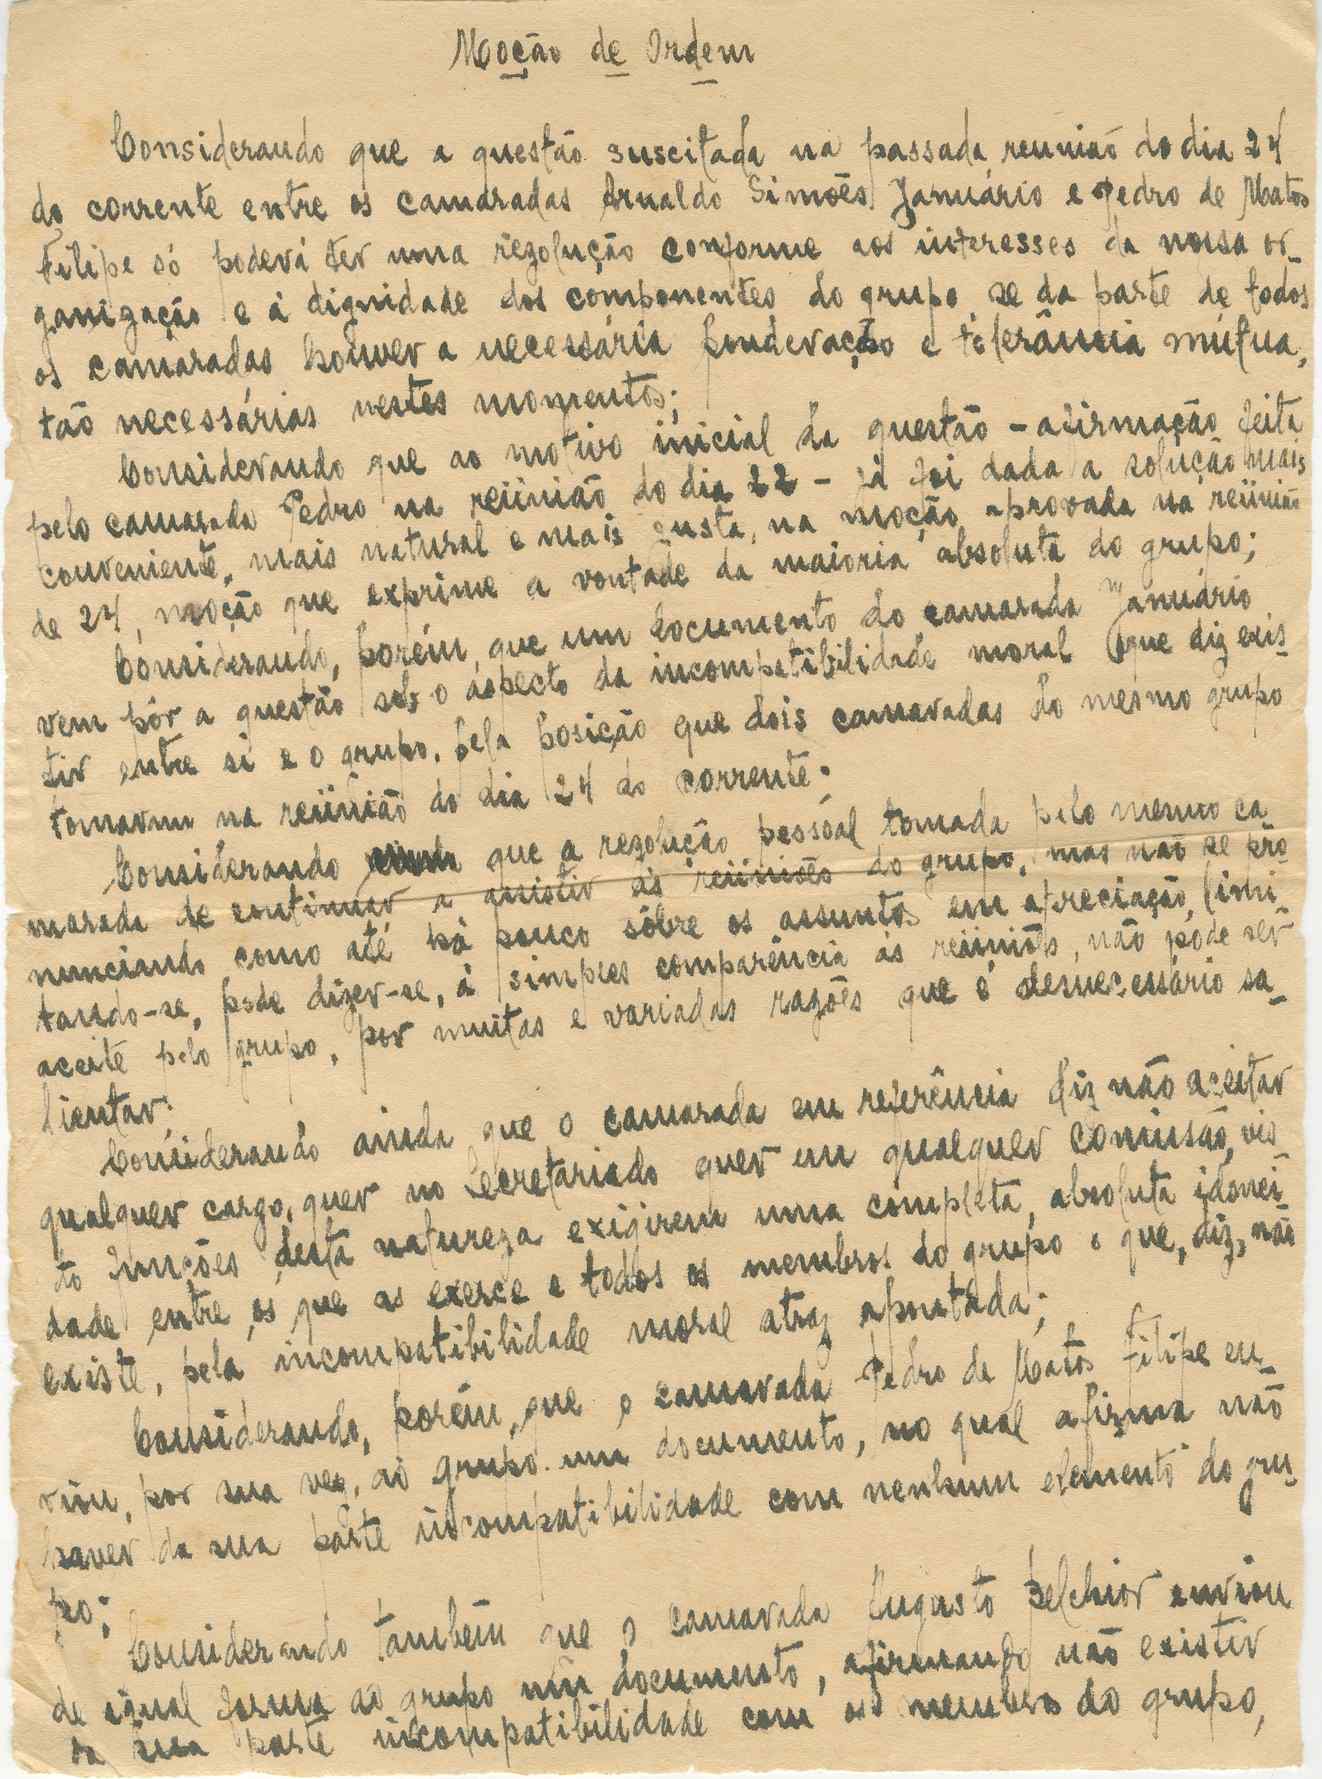 Moção de Ordem
Considerando que a questão suscitada na passada reunião do dia 24
do corrente entre os camaradas Arnaldo Simões Januário e Pedro de Matos
Filipe só poderá ter uma rezolução conforme aos interesses da nossa or-
ganização e á dignidade dos componentes do grupo se da parte de todos
os camaradas houver a necessária ponderação e tolerância mútua,
tão necessárias nestes momentos;
Considerando que ao motivo inicial da questão - afirmação feita
pelo camarada Pedro na reünião do dia 22 - já foi dada a solução mais
conveniente, mais natural e mais justa, na moção aprovada na reünião
de 24, moção que exprime a vontade da maioria absoluta do grupo;
Considerando, porém, que um documento do camarada Januário
vem pôr a questão sob o aspecto da incompatibilidade moral que diz exis-
tir entre si e o grupo, pela posição que dois camaradas do mesmo grupo
tomaram na reünião do dia 24 do corrente;
Considerando que a rezolução pessoal tomada pelo mesmo ca-
marada de continuar a assistir ás reüniões do grupo, mas não se pro-
nunciando como até há pouco sôbre os assuntos em apreciação, (limi-
tando-se, pode dizer-se, á simples comparência ás reüniões, não pode ser
aceite pelo grupo, por muitas e variadas razões que é desnecessário sa-
lientar;
Considerando ainda que o camarada em referência diz não aceitar
qualquer cargo, quer no Secretariado quer em qualquer comissão, vis-
to funções desta natureza exigirem uma completa, absoluta idonei-
dade entre os que as exerce e todos os membros do grupo o que, diz, não
existe, pela incompatibilidade moral atraz apontada;
Considerando, porém, que o camarada Pedro de Matos Filipe en-
viou, por sua vez, ao grupo um documento, no qual afirma não
haver da sua parte incompatibilidade com nenhum elemento do gru-
po;
Considerando também que o camarada Augusto Belchior enviou
de igual forma ao grupo um documento, afirmando não existir
da sua parte incompatibilidade com os membros do grupo,